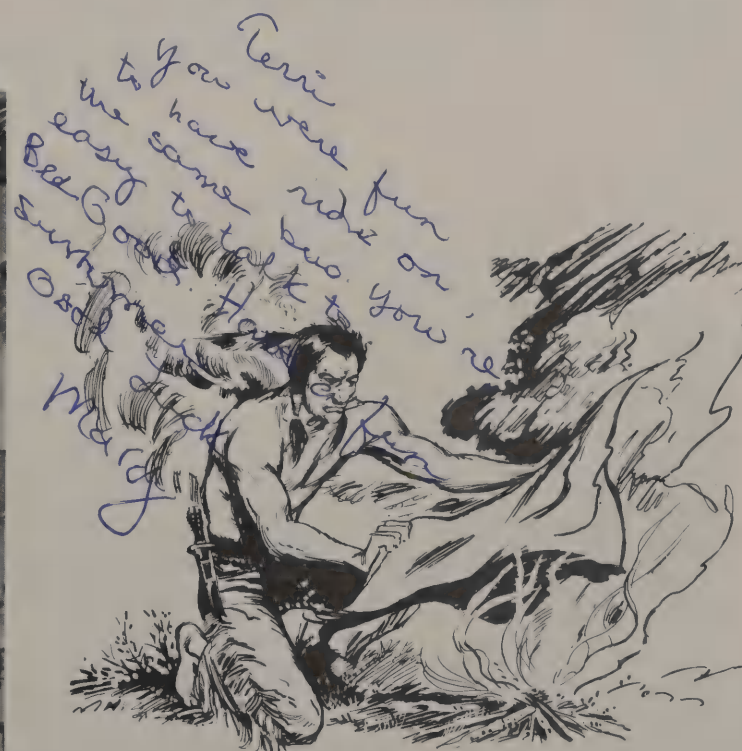 Terri
You were fun
to have ride on
the same bus. You're
easy to talk to
Be Good Have a fun
summer
Good Luck
Marg